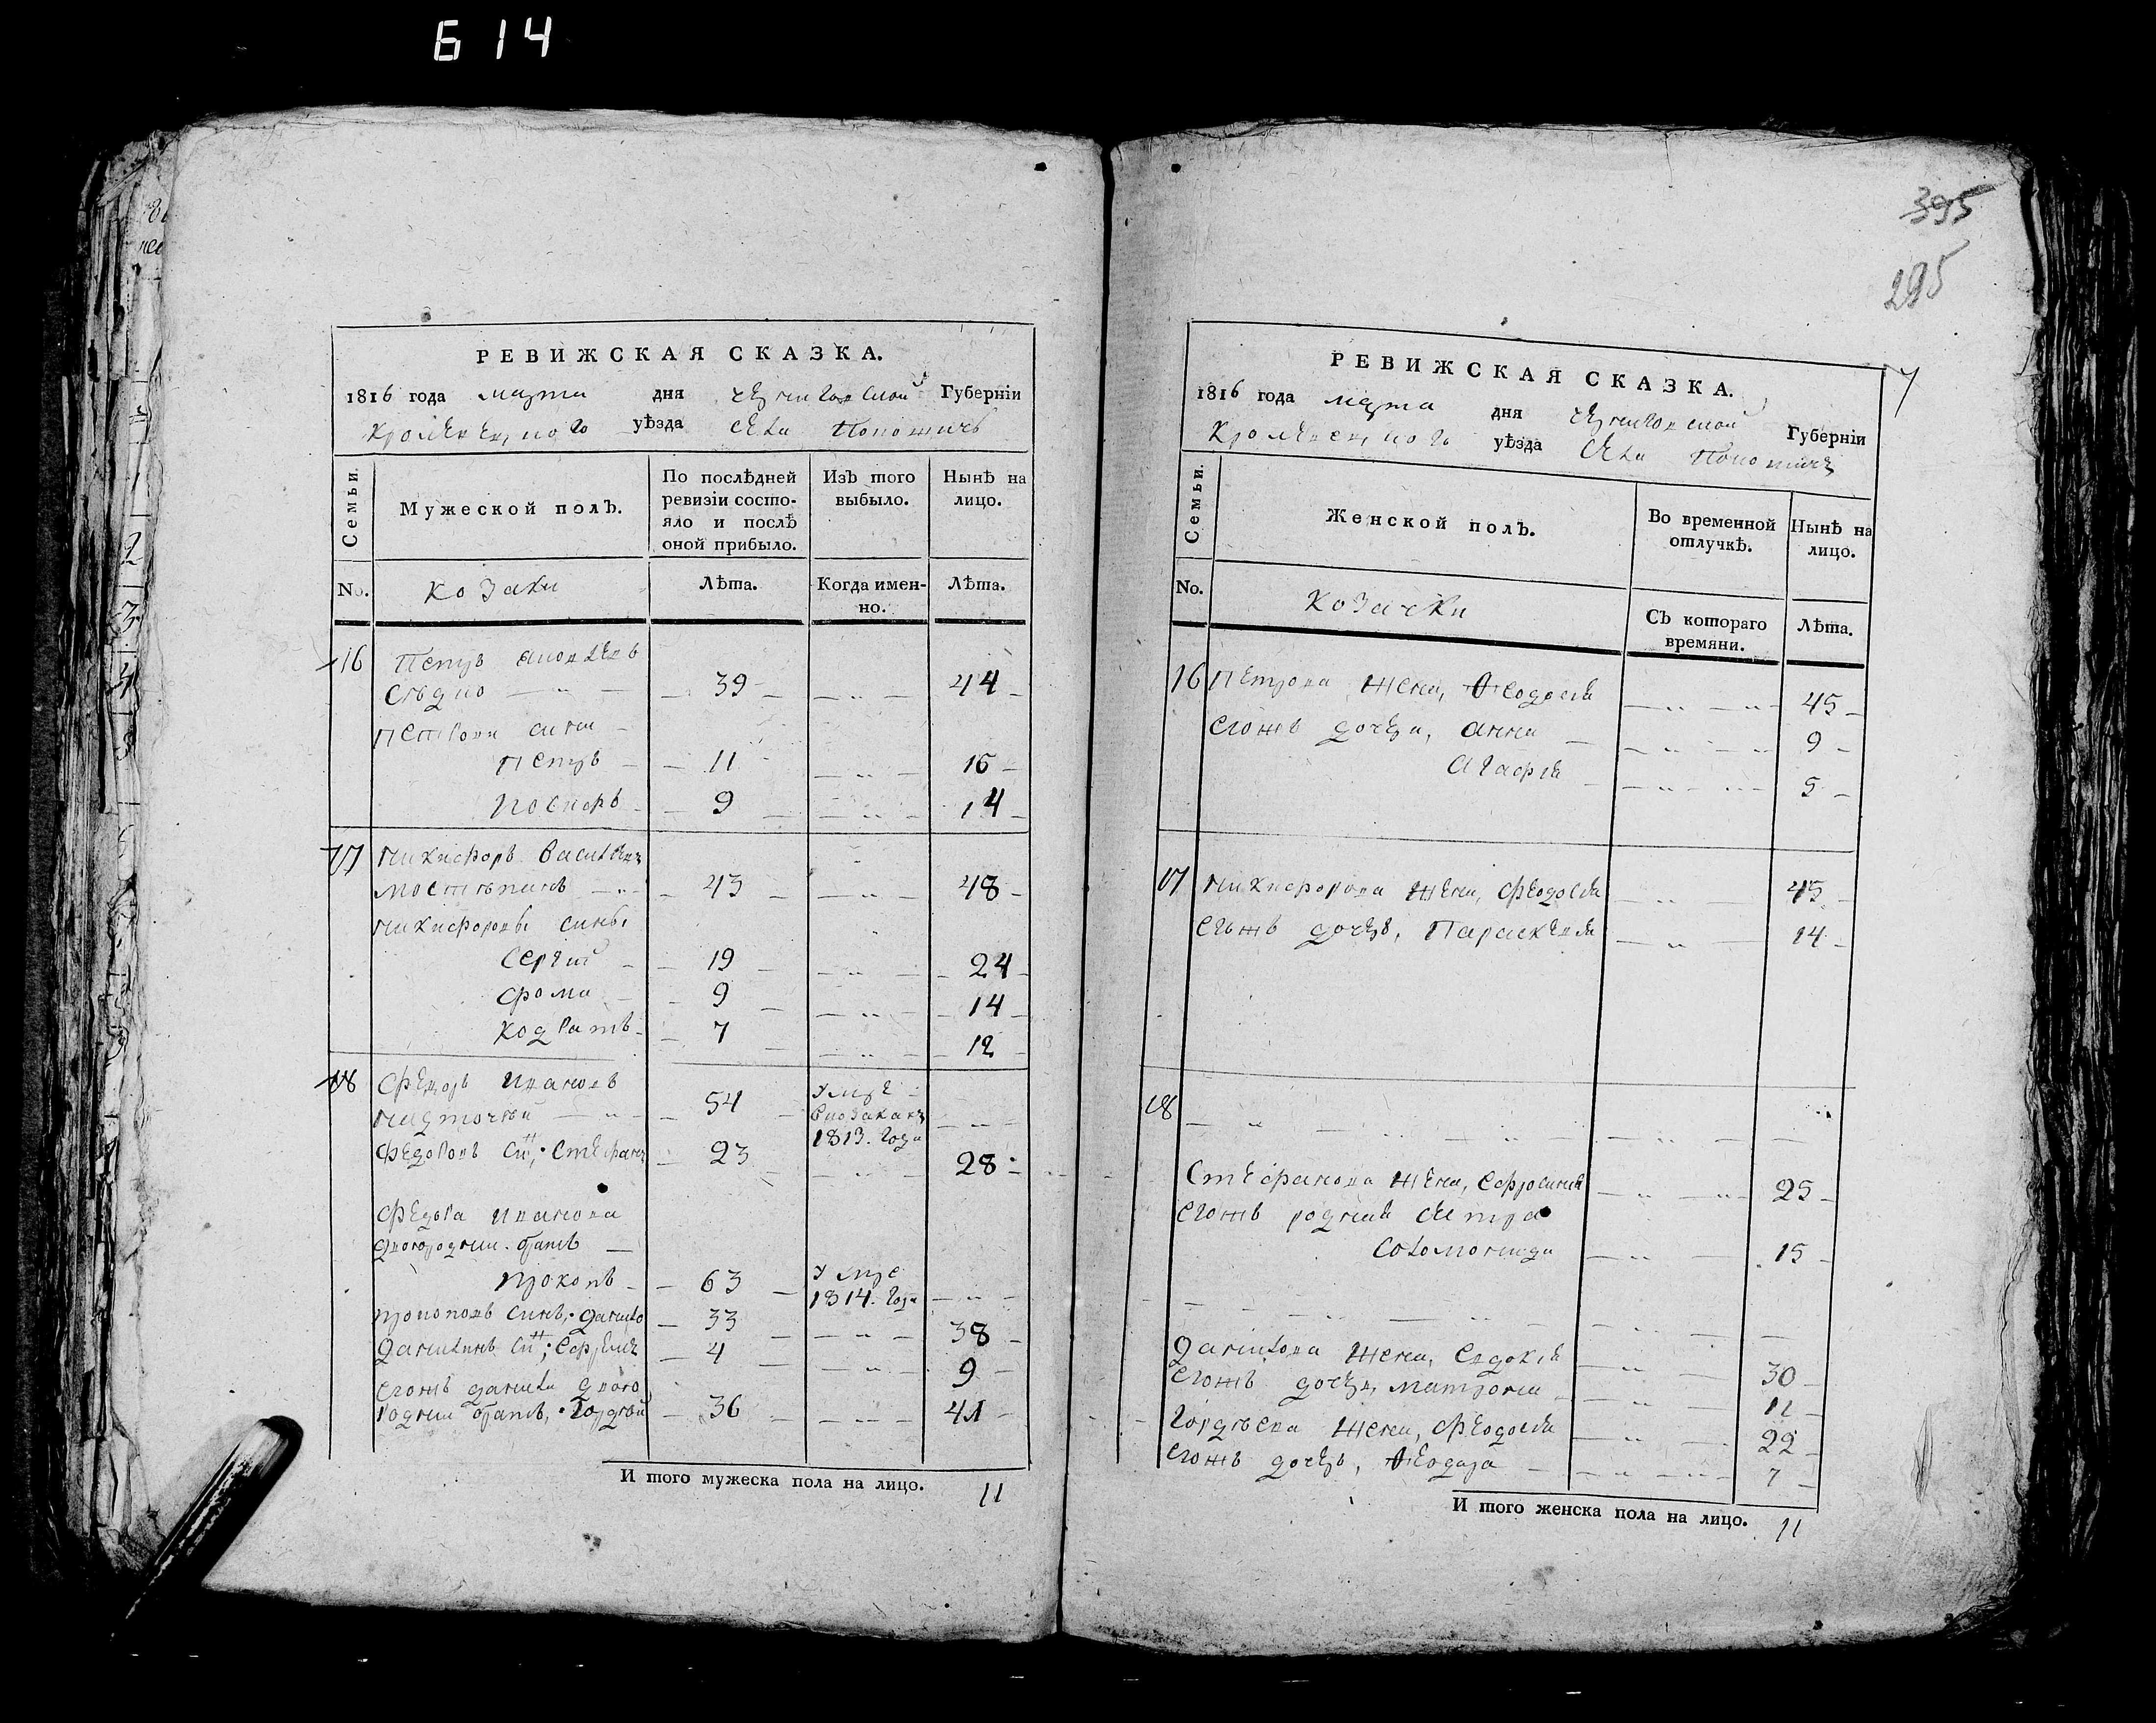 614
РЕВИЖСКАЯ СКАЗКА.
1816 года марта дня черниговской Губернiи
Кролевецкого уѣзда села
Семьи.
Мужеской полъ.
По послѣдней ревизiи состояло и послѣ оной прибыло.
Изъ того выбыло.
Нынѣ на лицо.
No.
козаки
Лѣта.
Когда именно.
Лѣта.
16 Петръ
39 44
сини
Петръ 11 16
9 14
17 Никифоръ
43 48
Никифоровы сины
Сергий 19 24
Фома 9 14
Кодратъ 7 12
18 Федоръ Ивановъ
54 Умре
1813. года
Федоровъ Стефанъ 23 28
Федора Иванова
двоюродний братъ
Прокопъ 63 Умре
1814. года
Прокоповъ синъ, Данило 33 38
Данилинъ Ефремъ 4 9
Егожъ данила двою
родний братъ, Гордѣй 36 41
И того мужеска пола на лицо. 11
395
295
7
РЕВИЖСКАЯ СКАЗКА.
1816 года марта дня черниговской Губернiи
Кролевецкого уѣзда села
Семьи.
Женской полъ.
Во временной отлучкѣ.
Нынѣ на лицо.
No.
козачки
Съ котораго времяни.
Лѣта.
16 Петрова жена, Ѳеодосия 45
Егожъ дочери, Анна 9
Агафия 5
17 Никифорова жена, Феодосия 45
Егожъ дочерь, Параскевия 14
18
Стефанова жена, Ефросиния 25
Егожъ родная сестра
Соломонида 15
Данилова жена, Евдокия 30
Егожъ дочерь, Матрона 12
Гордѣева жена, Феодосия 22
Егожъ дочерь, Ѳеодора 7
И того женска пола на лицо. 11